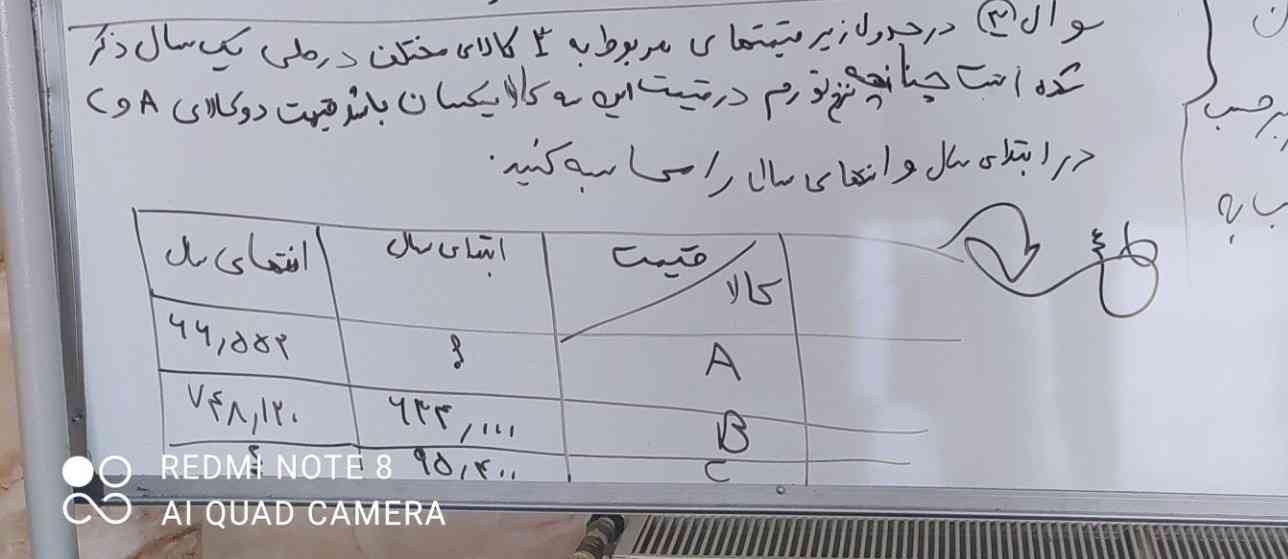 سوال ۳ در جدول زیر قیمتهای مربوط به ۳ کالای مختلف در طی یک سال ذکر
شده است چنانچه نرخ تورم در قیمت این سه کالا یکسان باشد قیمت دو کالای A و C
در ابتدای سال و انتهای سال را محاسبه کنید.
قیمت کالا ابتدای سال انتهای سال
A ؟ ۶۶,۵۵۲
B ۶۲۴,۰۰۰ ۷۴۸,۱۲۰
C ۹۵,۴۰۰ ؟
برحسب
REDMI NOTE 8
AI QUAD CAMERA